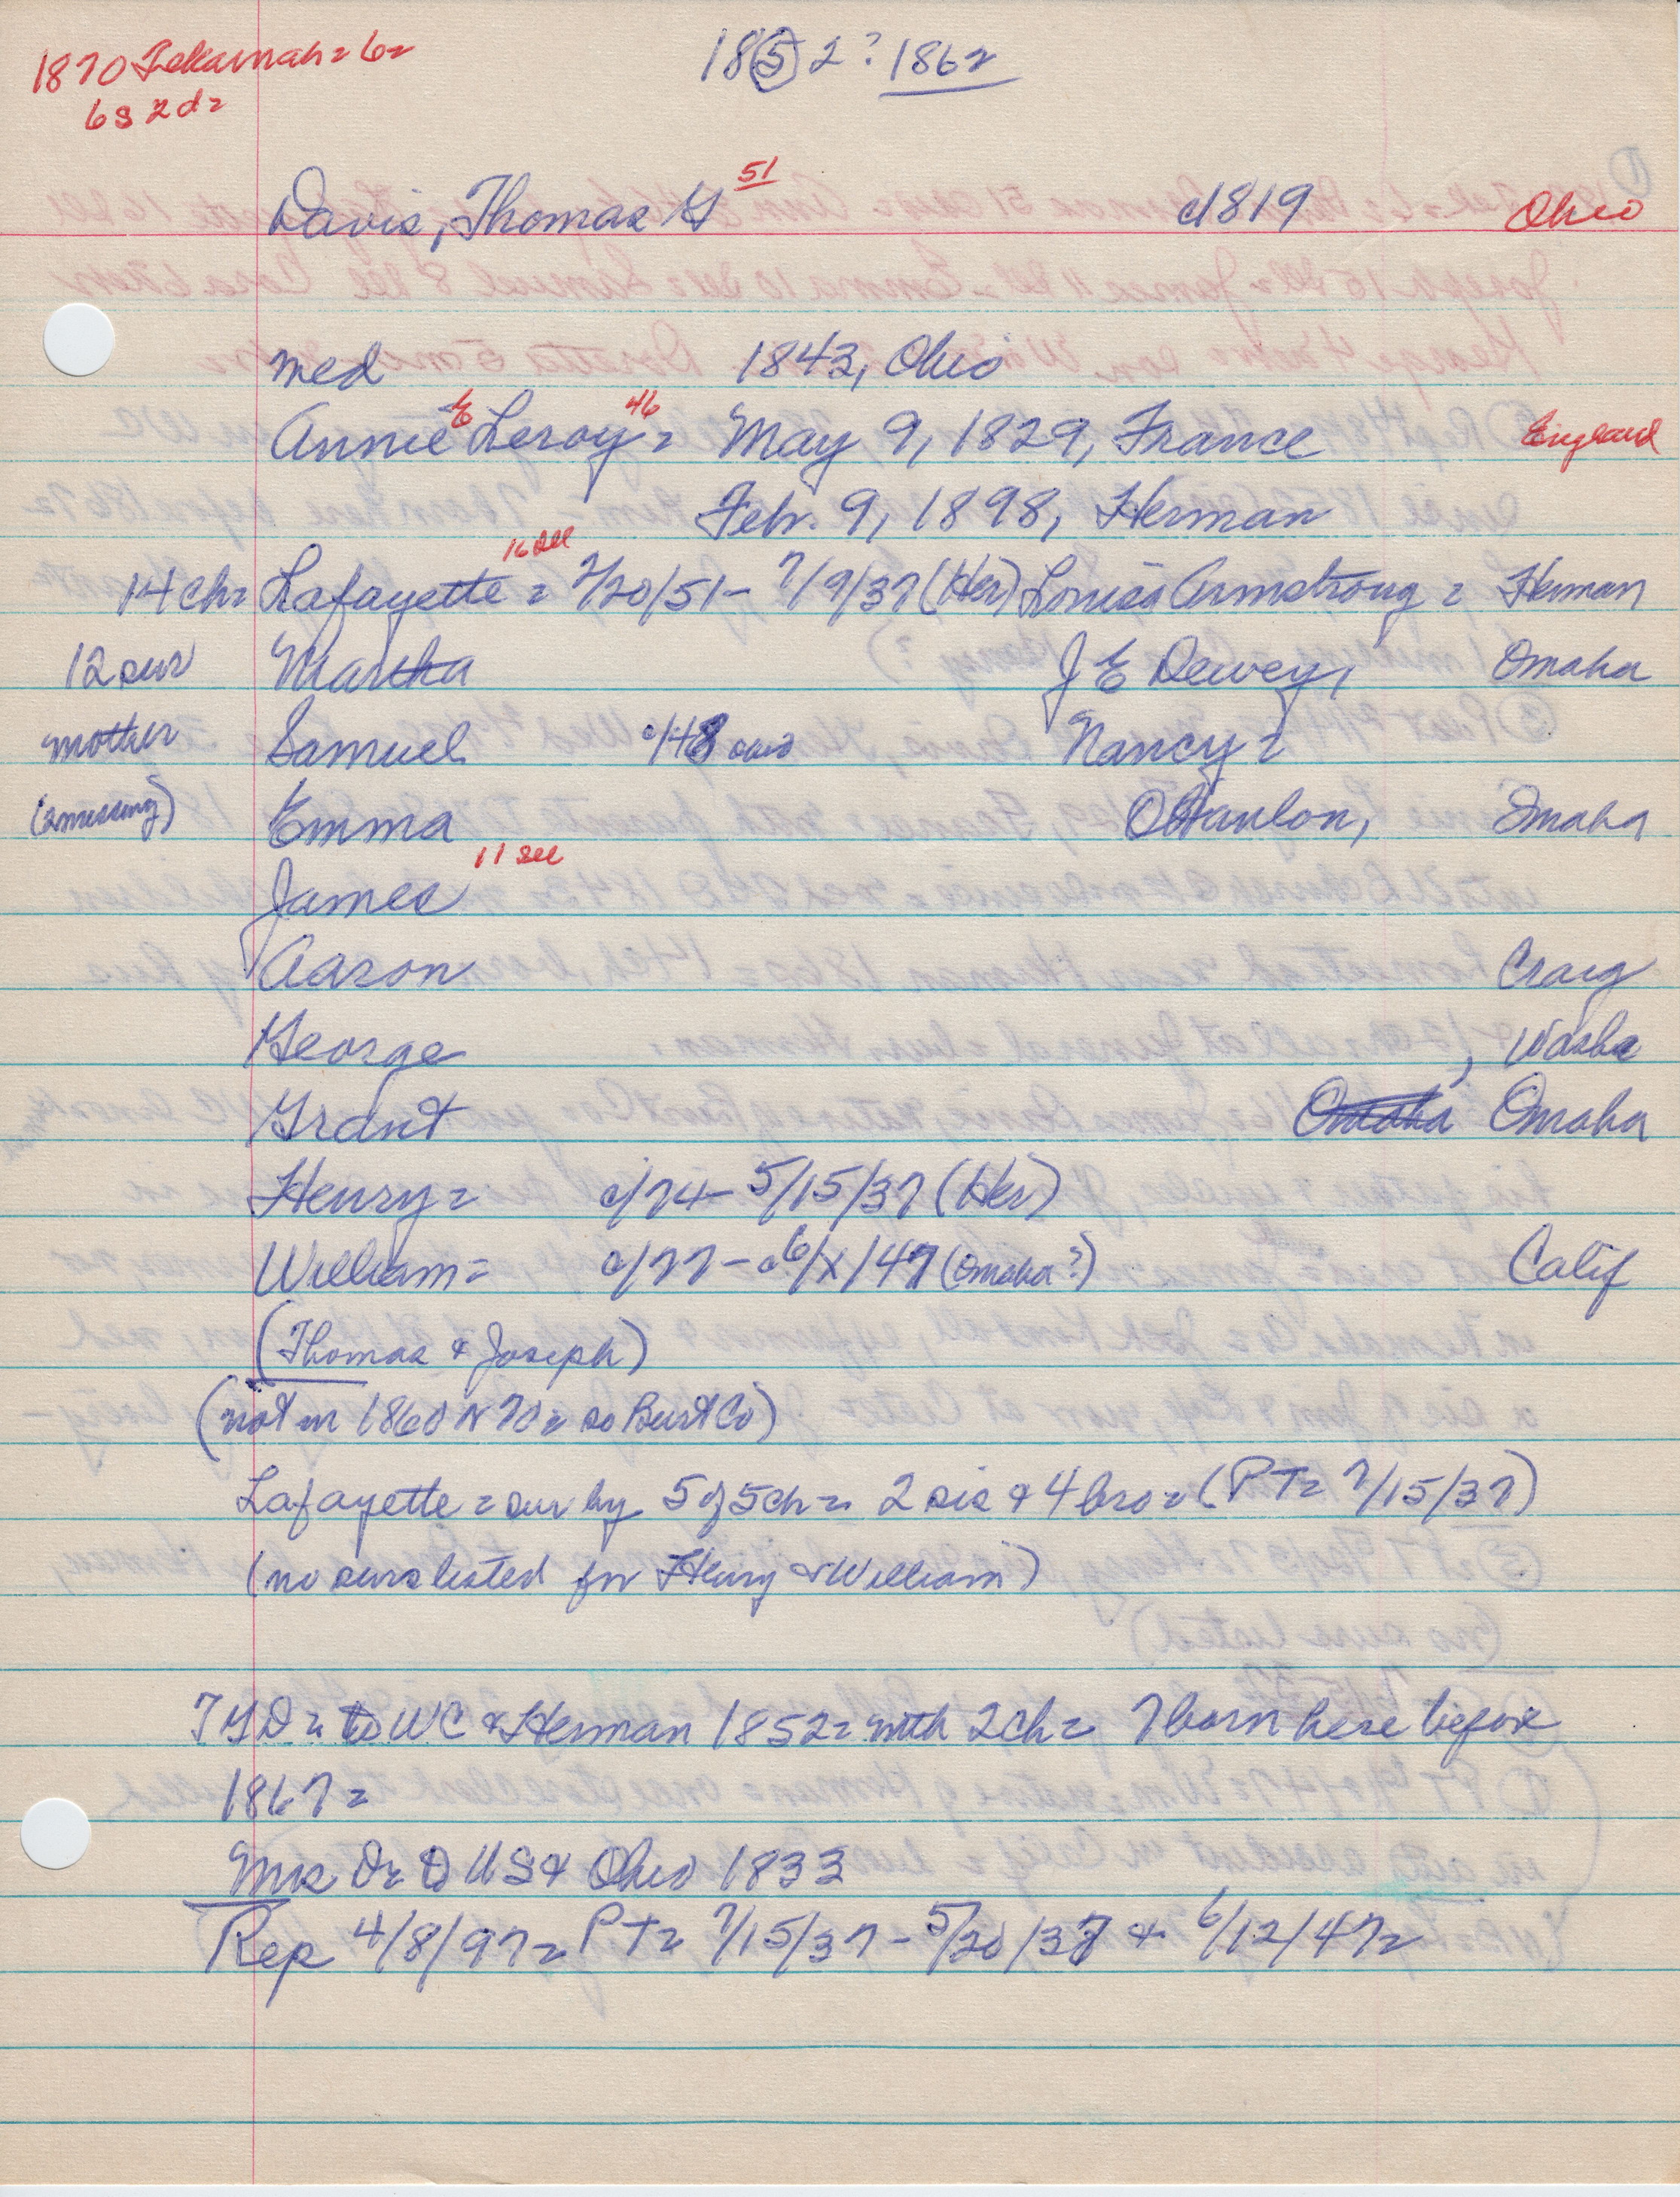 1870 Tekamah = 6 =
6s 2d =
18(5)2? 1862
51
Davis, Thomas G c/1819 Ohio
med 1843, Ohio
E 46
Annie Leroy = May 9, 1829, France England
Febr. 9, 1898, Herman
16 Ill
14 ch = Lafayette = 7/20/51 - 7/9/37 (Her) Louisa Armstrong = Herman
12 sur Martha J E Dewey, Omaha
mother Samuel c/48 Nancy =
(2 missing) Emma O'Hanlon, Omaha
11 Ill
James
Aaron Craig
George , Washe
Grant Omaha Omaha
Henry = c/74 - 5/15/37 (Her)
William = c/77 - c6/x/47 (Omaha?) Calif
(Thomas & Joseph)
(not in 1860 or 70 = so Burt Co)
Lafayette = sur by 5 of 5 ch = 2 sis & 4 bro = (PT = 7/15/37)
(no surs listed for Henry & William)
TGD = to WC & Herman 1852 = with 2 ch = 7 born here before
1867 =
Mrs D = to US & Ohio 1833
Rep 4/8/97 = PT = 7/15/37 - 5/20/37 & 6/12/47 =